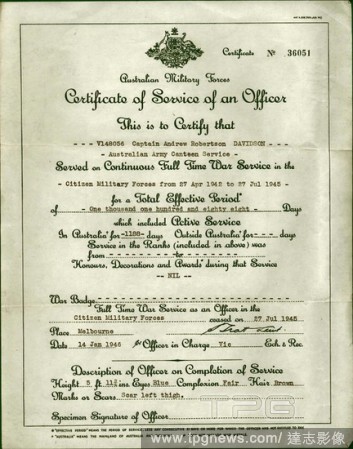 Certificate No 36051
Australian Military Forces
Certificate of Service of an Officer
This is to Certify that
- - - V148056 Captain Andrew Robertson DAVIDSON - - -
- Australian Army Canteen Service -
Served on Continuous Full Time War Service in the
- Citizen Military Forces from 27 Apr 1942 to 27 Jul 1945 -
for a Total Effective Period
of - One thousand one hundred and eighty eight - Days
which included Active Service
In Australia for -1188- days Outside Australia for - - - days
Service in the Ranks (included in above) was
from - - - - - - - - to - - - - - - - -
Honours, Decorations and Awards during that Service
--NIL--
War Badge
Full Time War Service as an Officer in the
Citizen Military Forces ceased on 27 Jul 1945
Place Melbourne
Date 14 Jan 1946 for Officer in Charge Vic Ech & Rec.
Description of Officer on Completion of Service
Height 5 ft. 11½ ins Eyes Blue Complexion Fair Hair Brown
Marks or Scars Scar left thigh.
Specimen Signature of Officer
TPG
www.tpgnews.com/達志影像